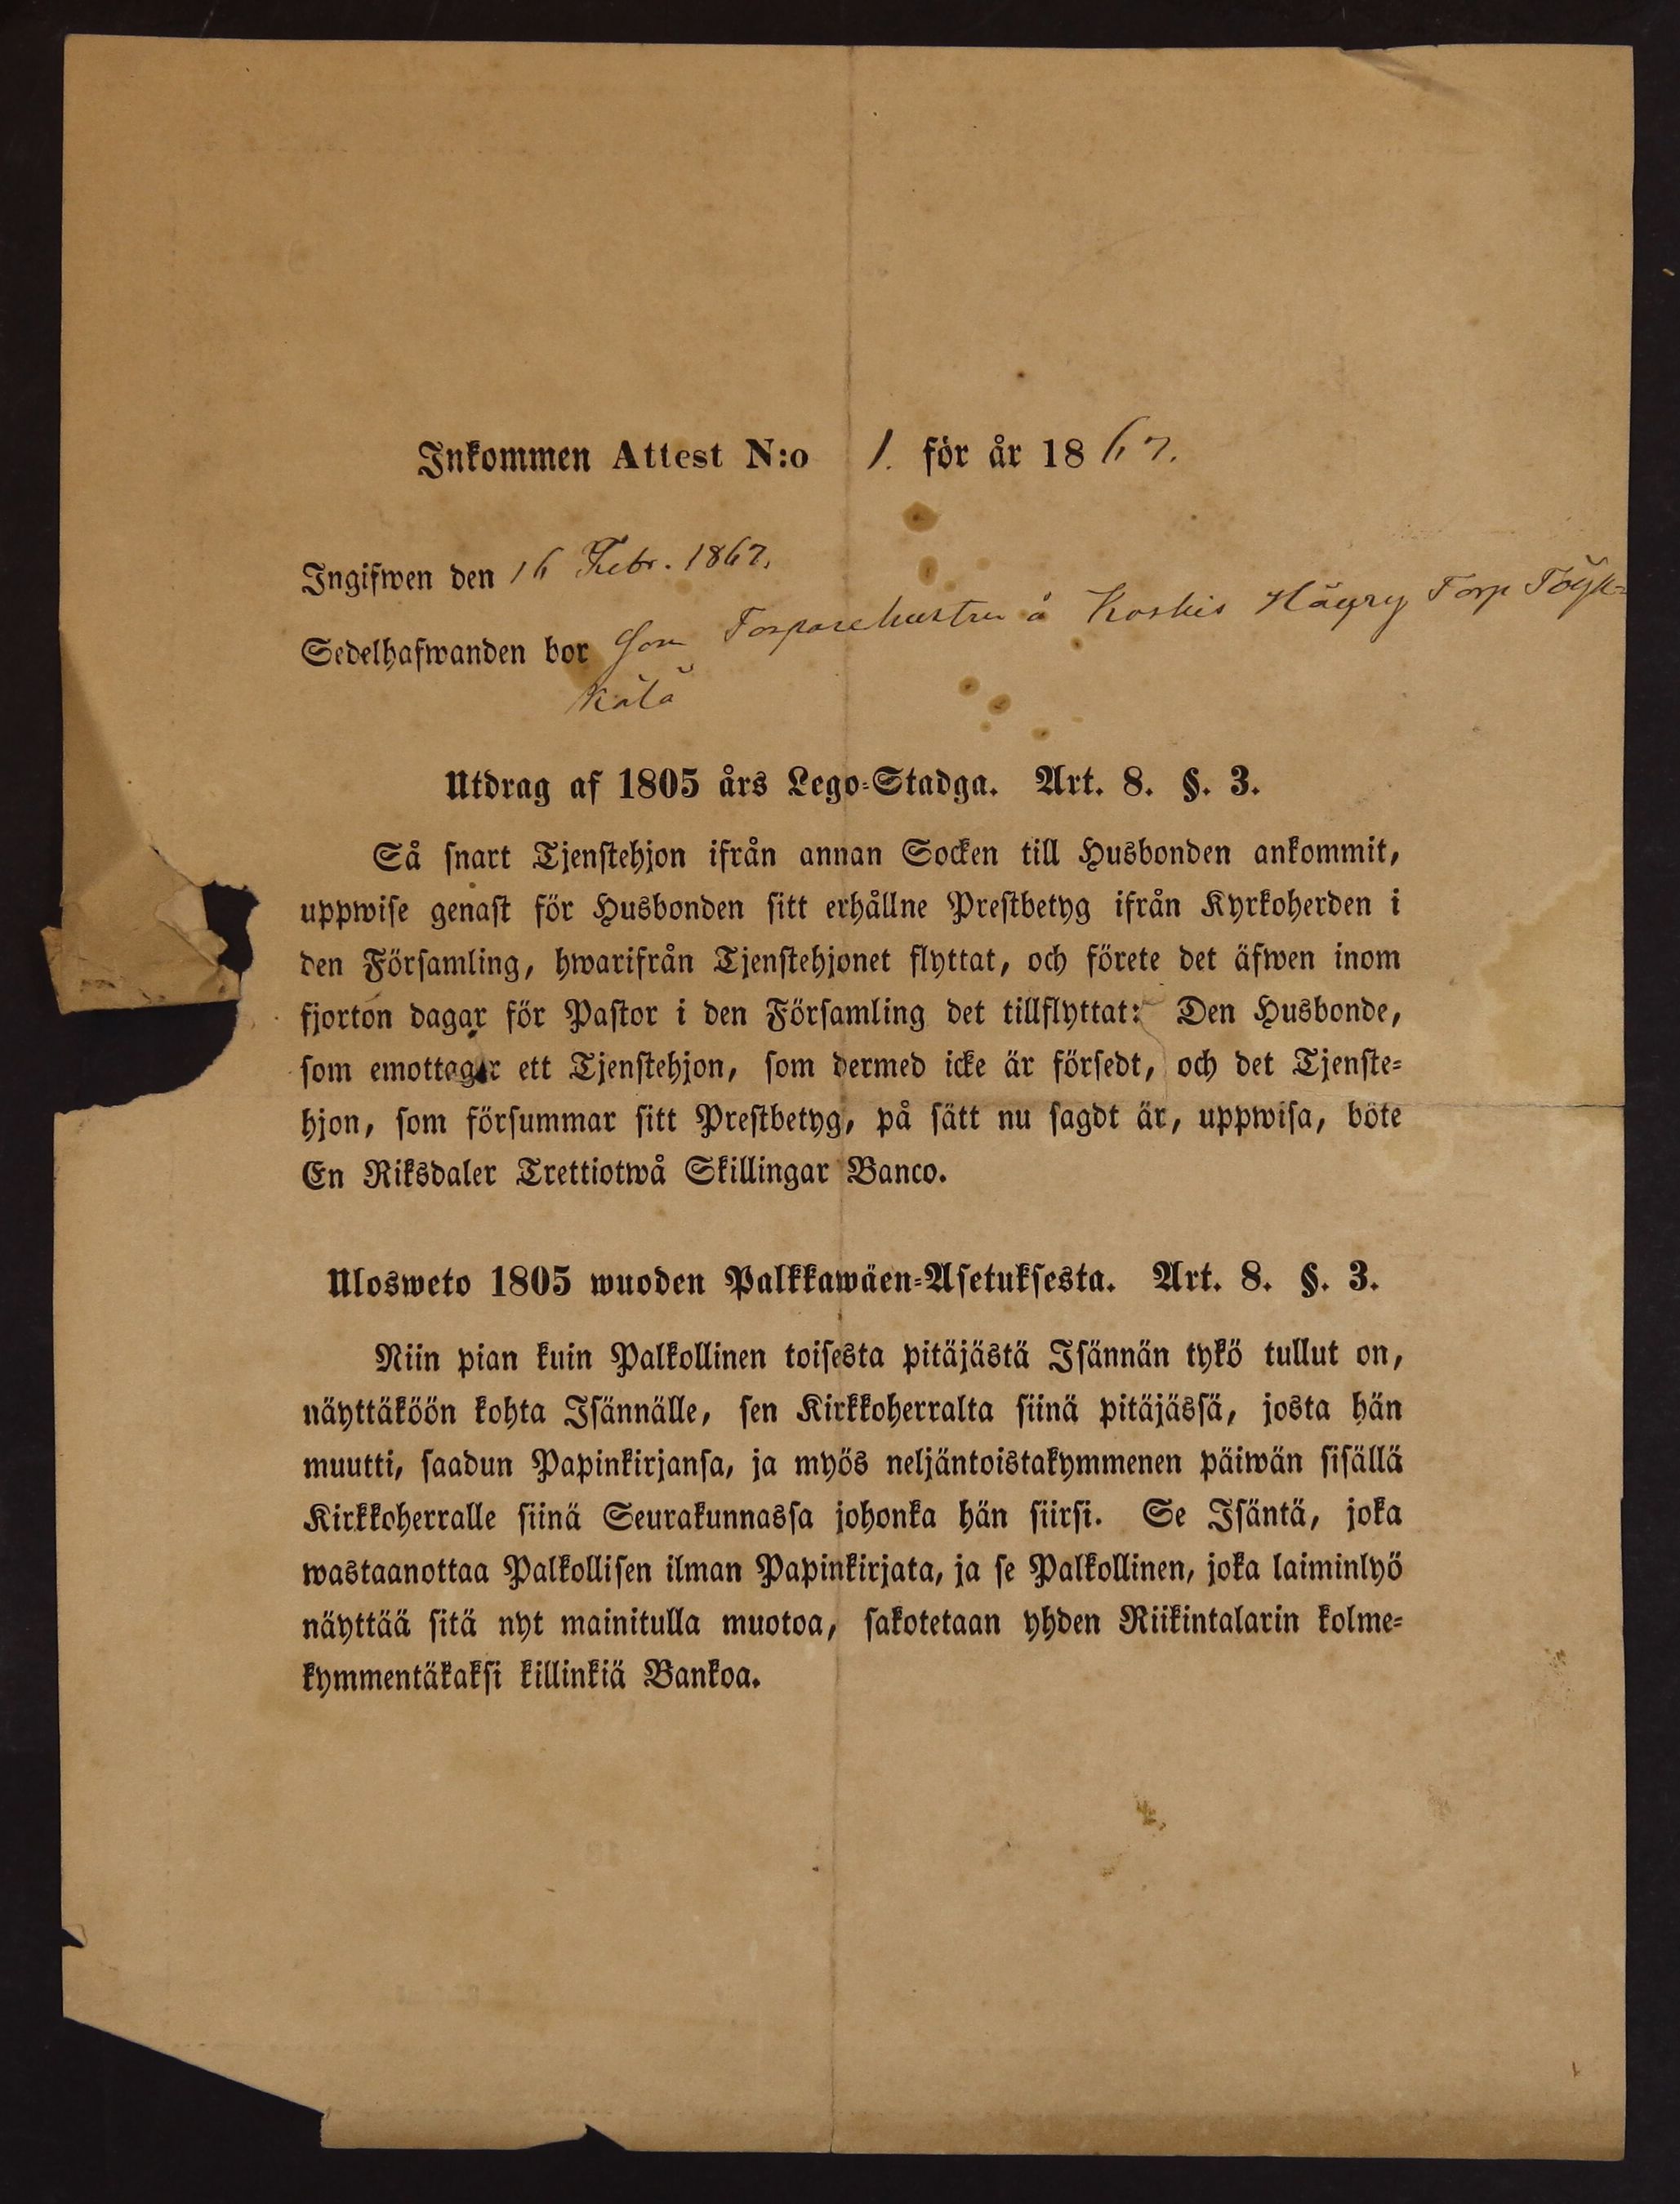 Inkommen Attest N:o 1. för år 1867.
Ingifwen den 16 Febr. 1867.
Sedelhafwanden bor som Torparehustru å Koskis Häyry Torp Töyk=
kälä
Utdrag af 1805 års Lego=Stadga. Art. 8. §. 3.
Så snart Tjenstehjon ifrån annan Socken till Husbonden ankommit,
uppwise genast för Husbonden sitt erhållne Prestbetyg ifrån Kyrkoherden i
den Församling, hwarifrån Tjenstehjonet flyttat, och förete det äfwen inom
fjorton dagar för Pastor i den Församling det tillflyttat: Den Husbonde,
som emottager ett Tjenstehjon, som dermed icke är försedt, och det Tjenste=
hjon, som försummar sitt Prestbetyg, på sätt nu sagdt är, uppwisa, böte
En Riksdaler Trettiotwå Skillingar Banco.
Ulosweto 1805 wuoden Palkkawäen=Asetuksesta. Art. 8. §. 3.
Niin pian kuin Palkollinen toisesta pitäjästä Isännän tykö tullut on,
näyttäköön kohta Isännälle, sen Kirkkoherralta siinä pitäjässä, josta hän
muutti, saadun Papinkirjansa, ja myös neljäntoistakymmenen päiwän sisällä
Kirkkoherralle siinä Seurakunnassa johonka hän siirsi. Se Isäntä, joka
wastaanottaa Palkollisen ilman Papinkirjata, ja se Palkollinen, joka laiminlyö
näyttää sitä nyt mainitulla muotoa, sakotetaan yhden Riikintalarin kolme=
kymmentäkaksi killinkiä Bankoa.